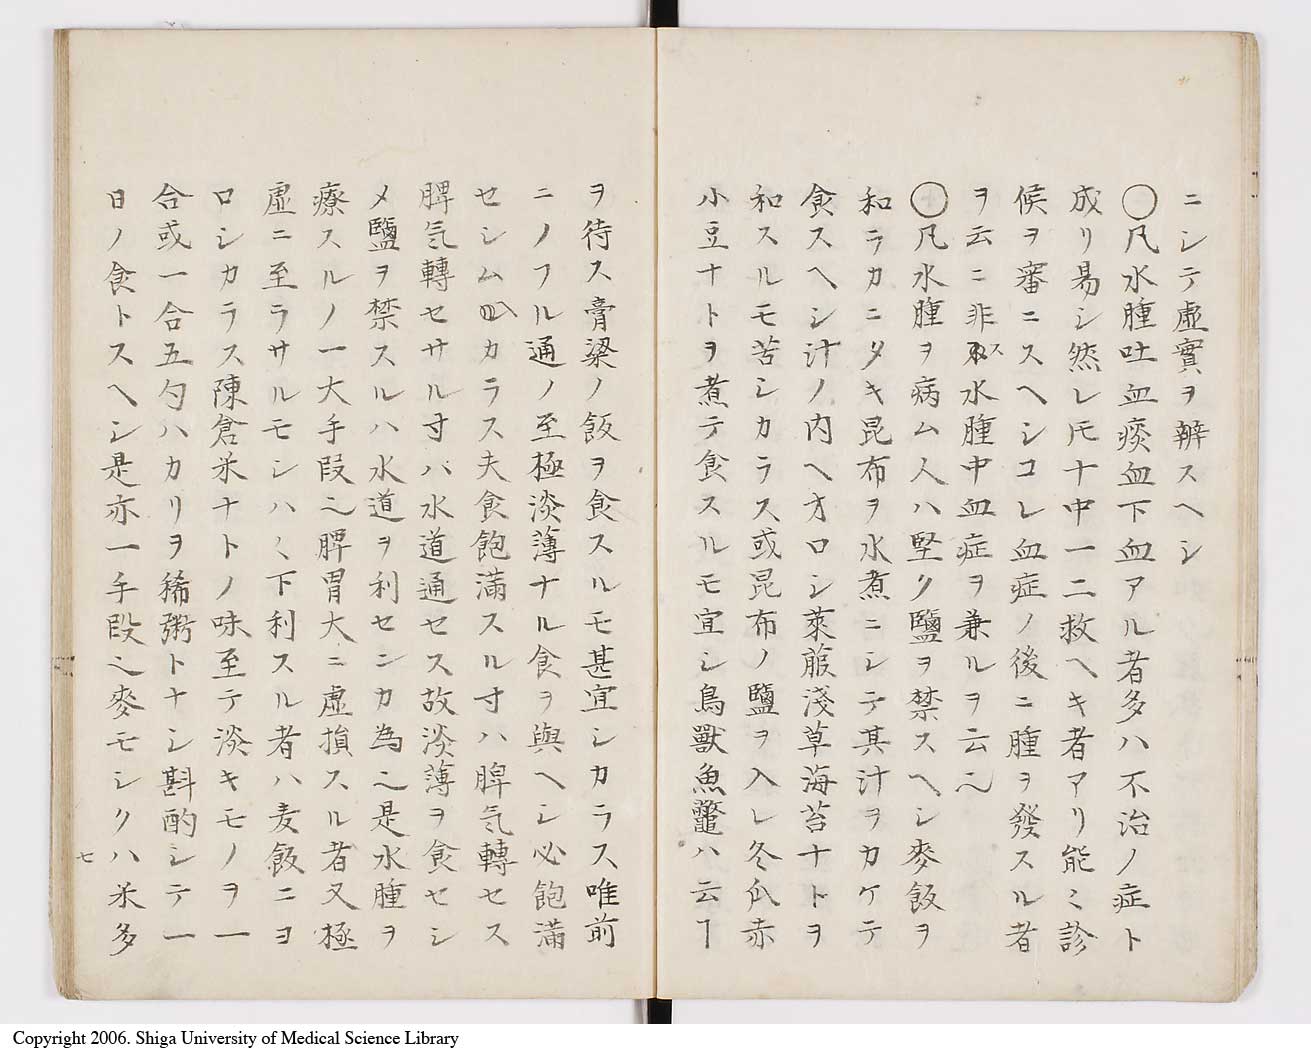 ニシテ虚實ヲ辨スヘシ
〇凡水腫吐血痰血下血アル者多ハ不治ノ症ト
成リ易シ然レ𪜈十中一二救ヘキ者アリ能ミ診
候ヲ審ニスヘシコレ血症ノ後ニ腫ヲ發スル者
ヲ云ニ非ス水腫中血症ヲ兼ルヲ云也
〇凡水腫ヲ病ム人ハ堅ク鹽ヲ禁スヘシ麥飯ヲ
和ラカニタキ昆布ヲ水煮ニシテ其汁ヲカケテ
食スヘシ汁ノ内ヘオロシ萊菔淺草海苔ナトヲ
和スルモ苦シカラス或昆布ノ鹽ヲ入レ冬瓜赤
小豆ナトヲ煮テ食スルモ宜シ鳥獸魚鼈ハ云ヿ
ヲ待ス膏粱ノ飯ヲ食スルモ甚宜シカラス唯前
ニノフル通ノ至極淡薄ナル食ヲ與ヘシ必飽滿
セシムヘカラス夫食飽滿スル寸ハ脾気轉セス
脾気轉セサル寸バ水道通セス故淡薄ヲ食セシ
メ鹽ヲ禁スルハ水道ヲ利センカ為也是水腫ヲ
療スルノ一大手段也脾胃大ニ虚損スル者又極
虚ニ至ラサルモシハ〱下利スル者ハ麦飯ニヨ
ロシカラス陳倉米ナトノ味至テ淡キモノヲ一
合或一合五勺ハカリヲ稀粥トナシ斟酌シテ一
日ノ食トスヘシ是亦一手段也麥モシクハ米多
七
Copyright 2006. Shiga University of Medical Science Library